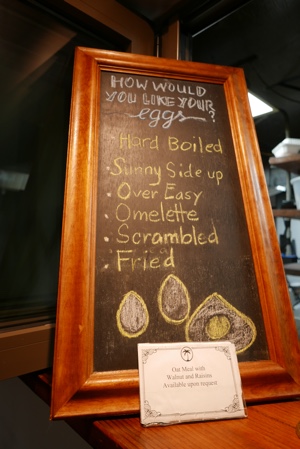 HOW WOULD
YOU LIKE YOUR
eggs?
Hard Boiled
• Sunny Side up
• Over Easy
• Omelette
• Scrambled
• Fried
Oat Meal with
Walnut and Raisins
Available upon request